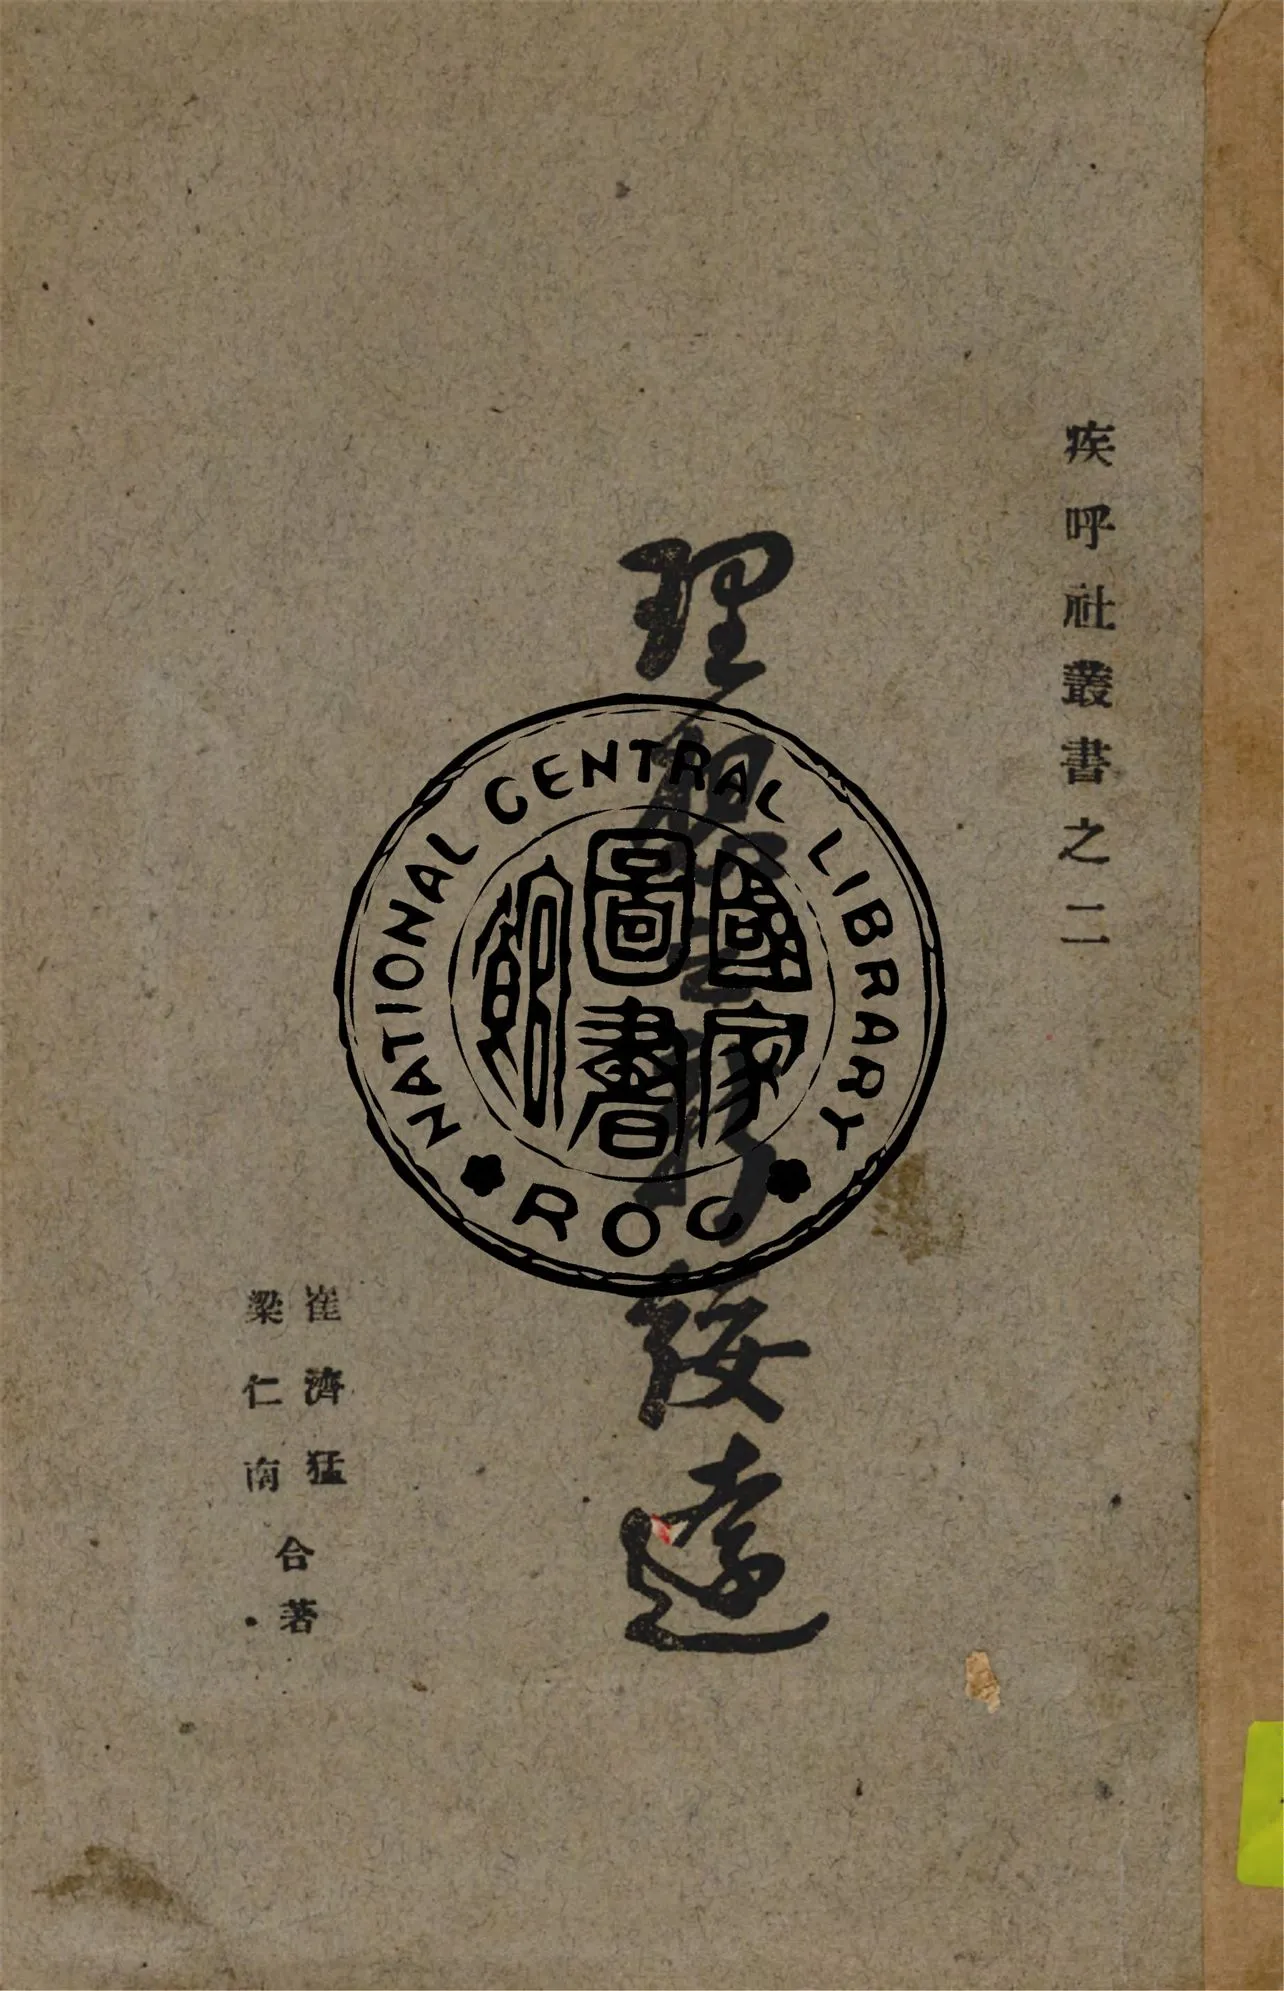 疾呼社叢書之二
理想之 綏遠
崔濟猛
梁仁南
合著
NATIONAL CENTRAL LIBRARY
國家圖書館
ROC